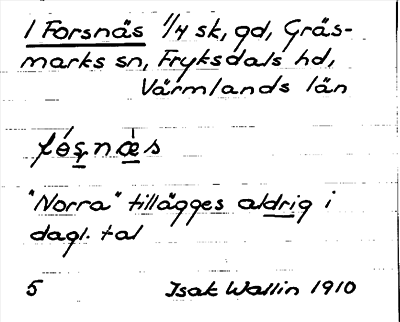 1 Forsnäs 1/4 sk, gd, Gräs-
marks sn, Fryksdals hd,
Värmlands län
fɵ́ṣnæ̀s
"Norra" tillägges aldrig i
dagl. tal
5 Isak Wallin 1910